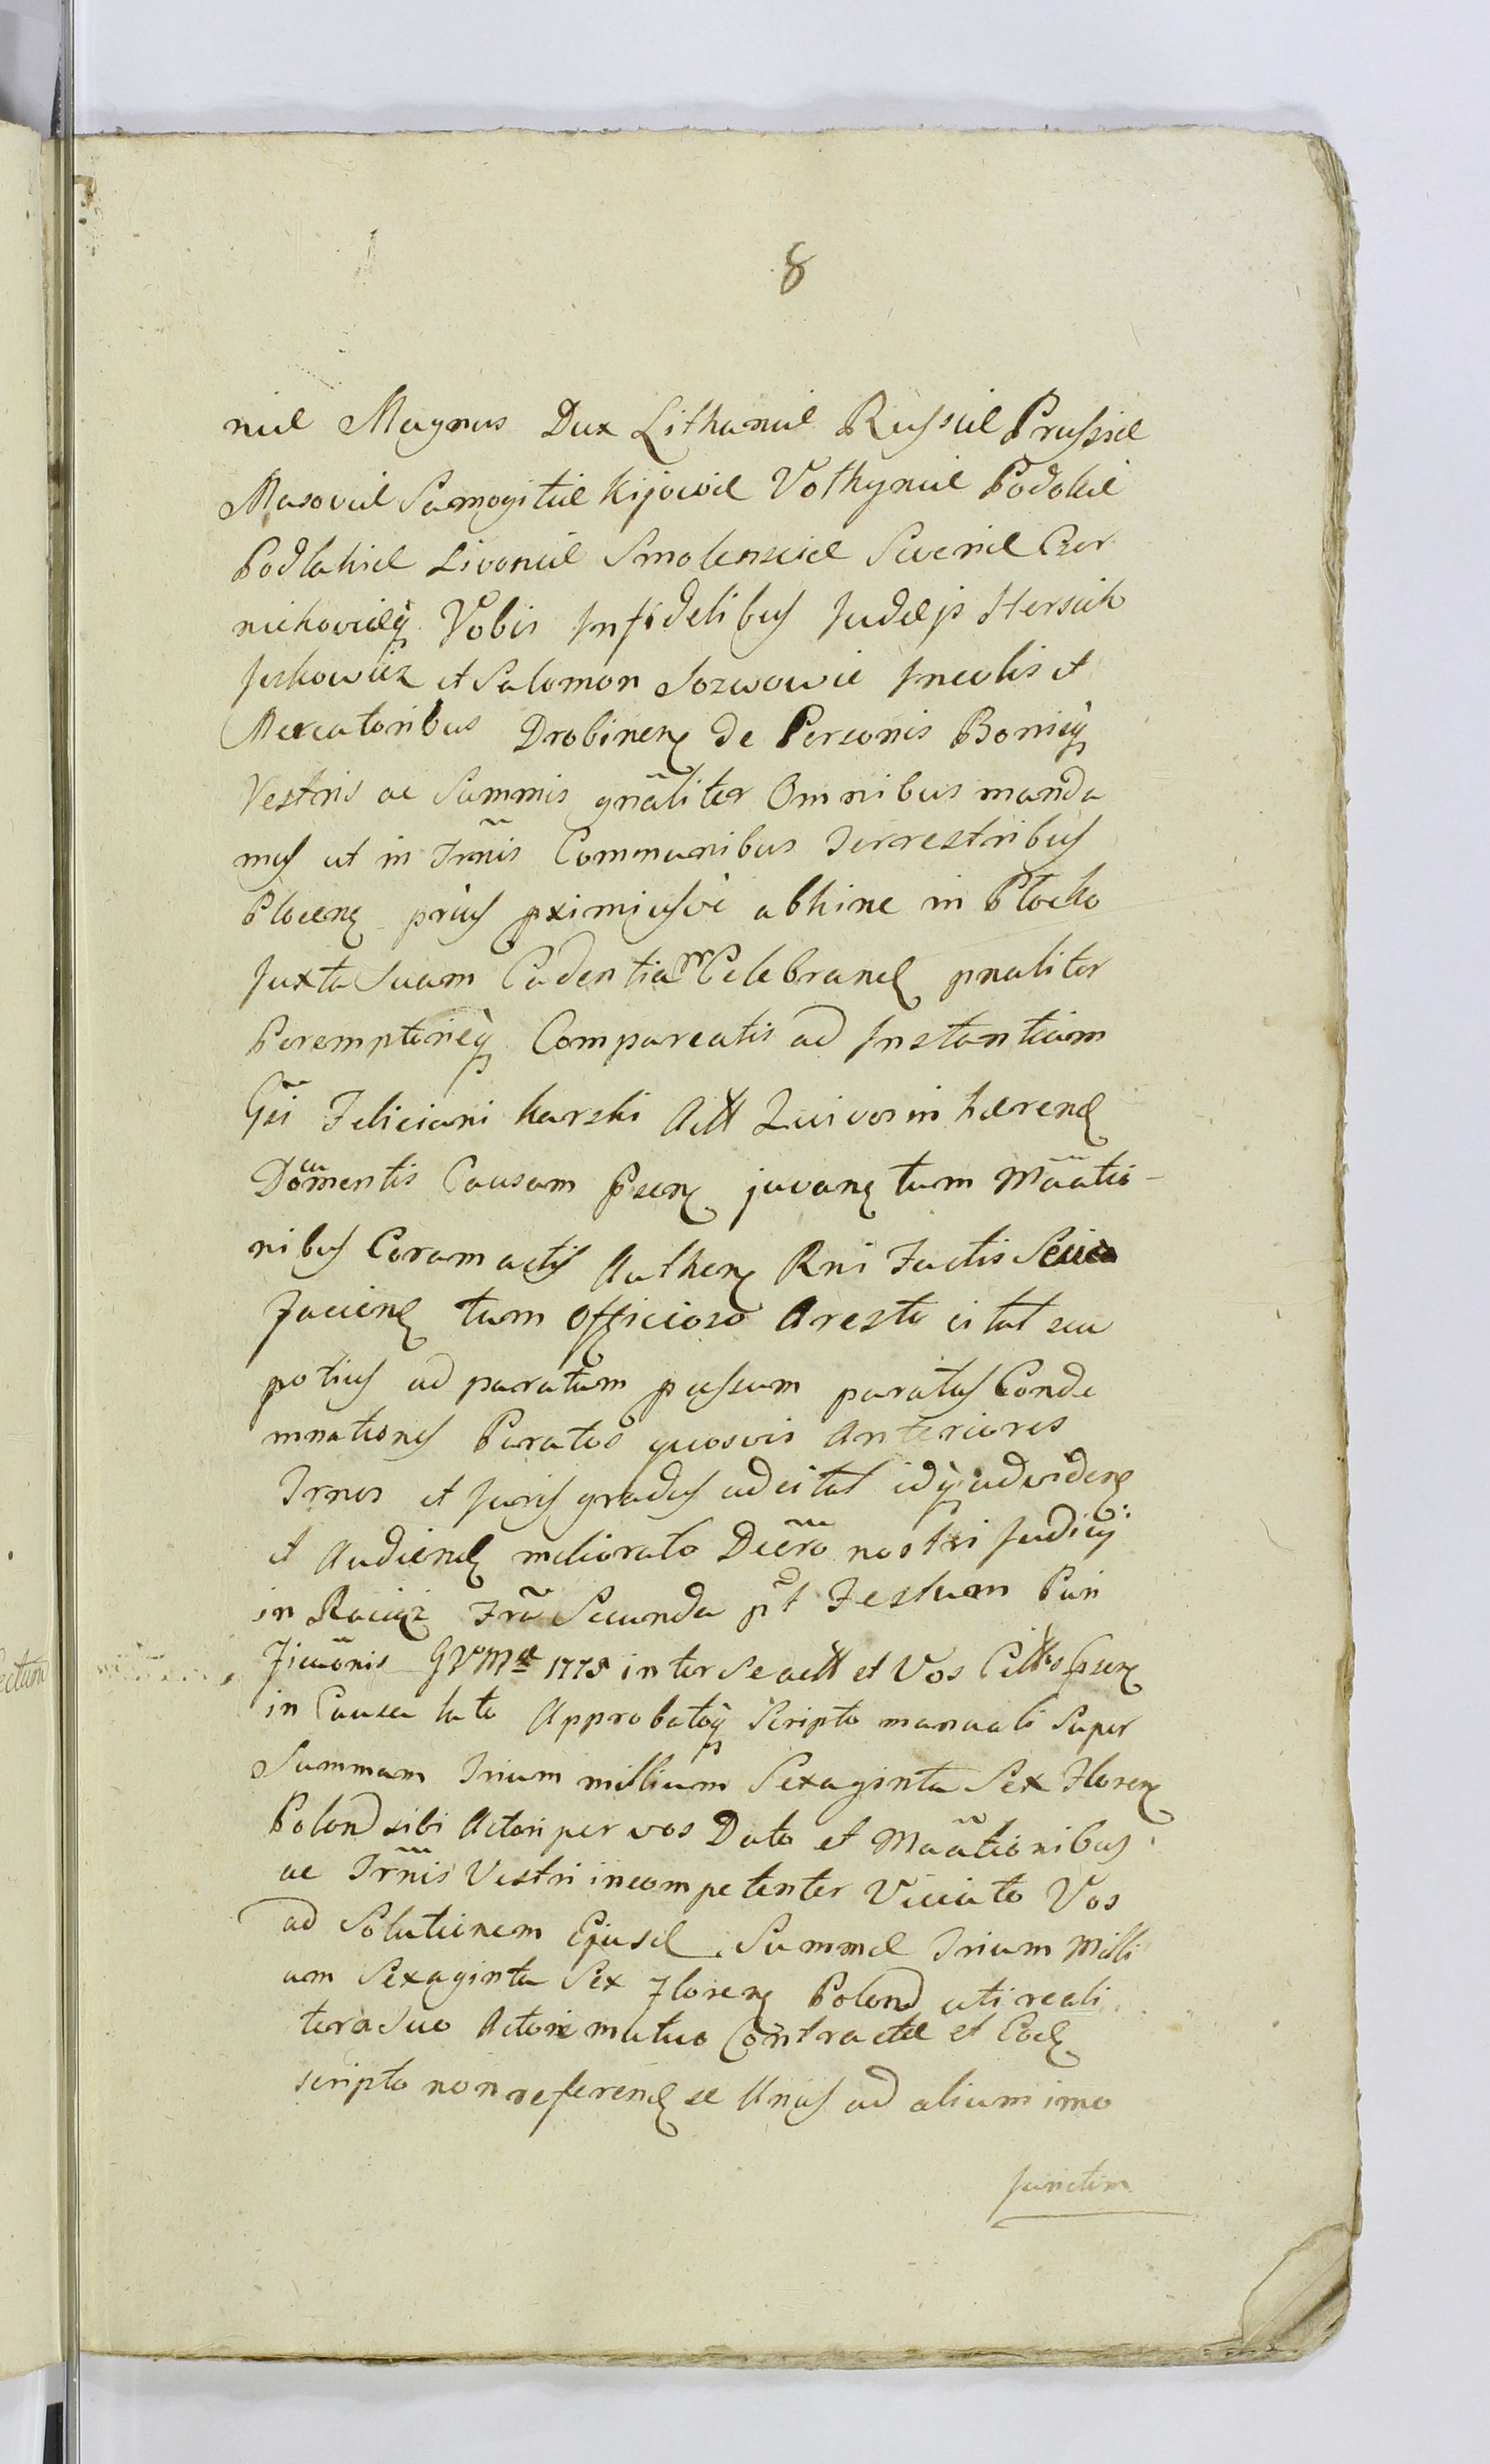 8
niæ Magnus Dux Lithaniæ Russiæ Prussiæ
Masoviæ Samogitiæ Kijoviæ Volhyniæ Podoliæ
Podlahiæ Livoniæ Smolensciæ Sveriæ Czer
niehoviæq Vobis Infidelibus Judæjs Hersich
Jeskowicz et Salomon Jozwowic Incolis et
Mercatoribus Drobinen de Personis Bonisq
Vestris ac Summis gnãliter Omnibus manda
mus ut in Trmis Communibus Terrestribus
Plocen prius pximiusve abhinc in Płocko
Juxta Suam Cadentiam Celebrand pnaliter
Peremptorieq Compareatis ad Instantiam
Gsi Feliciani Karski Actt Qui vos in hærend
Domentis Causam psen juvan tum Maatio
nibus Coram actis Authen Rni Factis
Faciend tum Officioso Aresto citat seu
potius ad paratum passum paratas Conde
mnationes Paratos quosvis Anteriores
Trnos et Juris gradus adcitat idq advidend
et Audiend meliorato Decro nostri Judicij
in Raciąz Fra Secunda pt Festum Puri
ficaonis GVMæ 1775 inter Se actt et Vos Cittos psen
in Causa lato Approbatoq Scripto manuali Super
Summam Trium millium Sexaginta Sex Floren
Polon sibi Actori per vos Dato et Maationibus
ac Trmis Vestri incompetenter Viciato Vos
ad Solutionem Ejusd Summæ Trium Milli
um Sexaginta Sex Floren Polon uti reali
ter a Suo Actore mutuo Contractæ et Eod
scripto non referend se Unus ad alium imo
Junctim